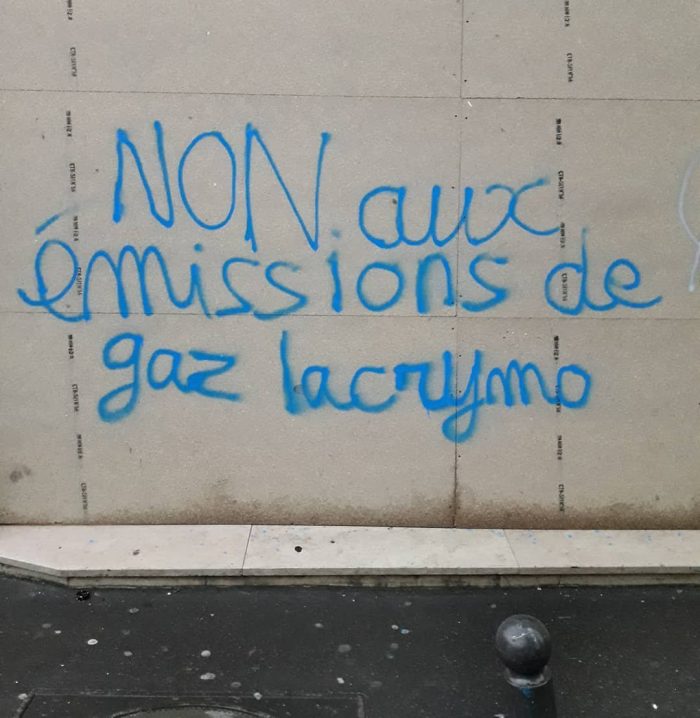 NON aux
émissions de
gaz lacrymo